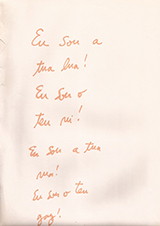 Eu Sou a
tua lua!
Eu Sou o
teu rei!
Eu sou a tua
Eu sou o teu
gay!